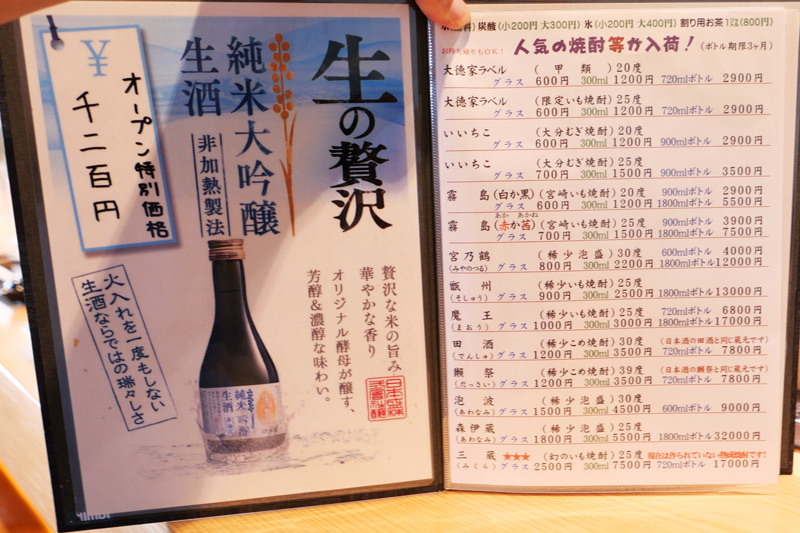 生の贅沢
純米大吟醸
生酒
非加熱製法
オープン特別価格
￥
千二百円
贅沢な米の旨み
華やかな香り
オリジナル酵母が醸す、
芳醇＆濃醇な味わい。
火入れを一度もしない
生酒ならではの瑞々しさ
純米大吟醸
生酒
炭酸(小200円 大300円) 氷(小200円 大400円) 割り用お茶1㍑(800円)
お持ち帰りもOK! 人気の焼酎等が入荷! (ボトル期限3ヶ月)
大徳家ラベル (甲類)20度
グラス 600円 300ml 1200円 720mlボトル 2900円
大徳家ラベル (限定いも焼酎)25度
グラス 600円 300ml 1200円 720mlボトル 2900円
いいちこ (大分むぎ焼酎)20度
グラス 600円 300ml 1200円 900mlボトル 2900円
いいちこ (大分むぎ焼酎)25度
グラス 700円 300ml 1500円 900mlボトル 3500円
霧島(白か黒)(宮崎いも焼酎)20度 900mlボトル 2900円
グラス 600円 300ml 1200円 1800mlボトル 5500円
あか あかね
霧島(赤か茜)(宮崎いも焼酎)25度 900mlボトル 3900円
グラス 700円 300ml 1500円 1800mlボトル 7500円
宮乃鶴 (稀少泡盛)30度 600mlボトル 4000円
(みやのつる) グラス 800円 300ml 2200円 1800mlボトル 12000円
甑州 (稀少いも焼酎)25度
(そしゅう) グラス 900円 300ml 2500円 1800mlボトル 13000円
魔王 (稀少いも焼酎)25度 720mlボトル 6800円
(まおう) グラス 1000円 300ml 3000円 1800mlボトル 17000円
田酒 (稀少こめ焼酎)30度 (日本酒の田酒と同じ蔵元です)
(でんしゅ) グラス 1200円 300ml 3500円 720mlボトル 7800円
獺祭 (稀少こめ焼酎)39度 (日本酒の獺祭と同じ蔵元です)
(だっさい) グラス 1200円 300ml 3500円 720mlボトル 7800円
泡波 (稀少泡盛)30度
(あわなみ) グラス 1500円 300ml 4500円 600mlボトル 9000円
森伊蔵 (稀少泡盛)25度
(あわなみ) グラス 1800円 300ml 5500円 1800mlボトル 32000円
三蔵 ★★★ (幻のいも焼酎)25度 現在は作られていない熟成焼酎です!
(みくら) グラス 2500円 300ml 7500円 720mlボトル 17000円